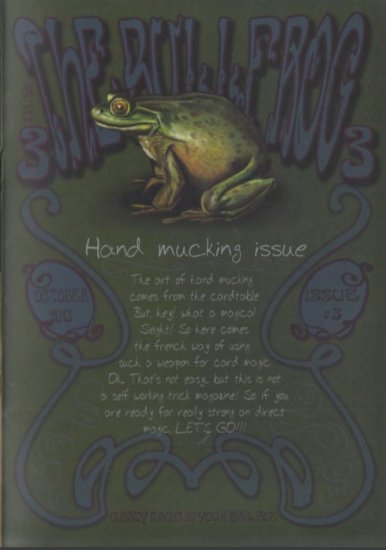 THE BULLFROG
ISSUE
3 3
Hand mucking issue
The art of hand mucking
comes from the cardtable
But, hey! what a magical
Sleight! So here comes
the french way of using
such a weapon for card magic
Ok, That's not easy, but this is not
a self working trick magazine! So, if you
are ready for really strong an direct
magic, LET'S GO!!!
OCTOBER
2013
ISSUE
#3
CRAZY MAGIC IN YOUR MAIL BOX